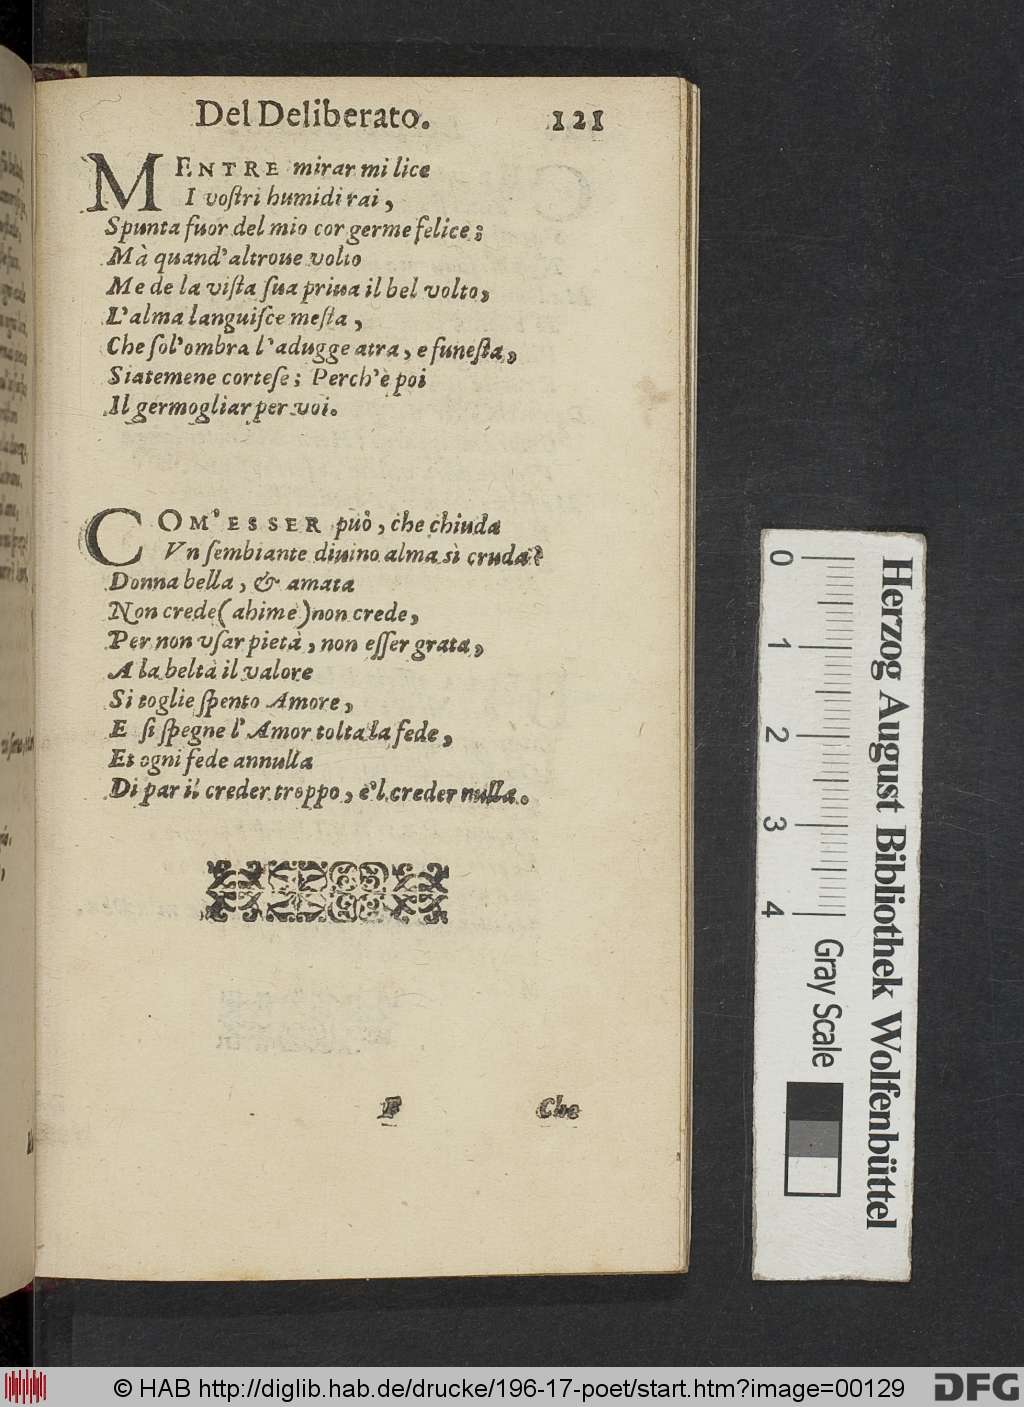 Del Deliberato. 121
MENTRE mirar mi lice
I voſtri humidi rai,
Spunta fuor del mio cor germe felice;
Mà quand'altroue volto
Me de la viſta ſua priua il bel volto,
L'alma languiſce meſta,
Che ſol'ombra l'adugge atra, e funeſta,
Siatemene corteſe; Perch'è poi
Il germogliar per voi.
COM'ESSER può, che chiuda
Vn ſembiante diuino alma sì cruda?
Donna bella, & amata
Non crede (ahime) non crede,
Per non vſar pietà, non eſſer grata,
A la beltà il valore
Si toglie ſpento Amore,
E ſi ſpegne l'Amor tolta la fede,
Et ogni fede annulla
Di par il creder troppo, e'l creder nulla.
F Che
0 1 2 3 4
Gray Scale
Herzog August Bibliothek Wolfenbüttel
© HAB http://diglib.hab.de/drucke/196-17-poet/start.htm?image=00129
DFG